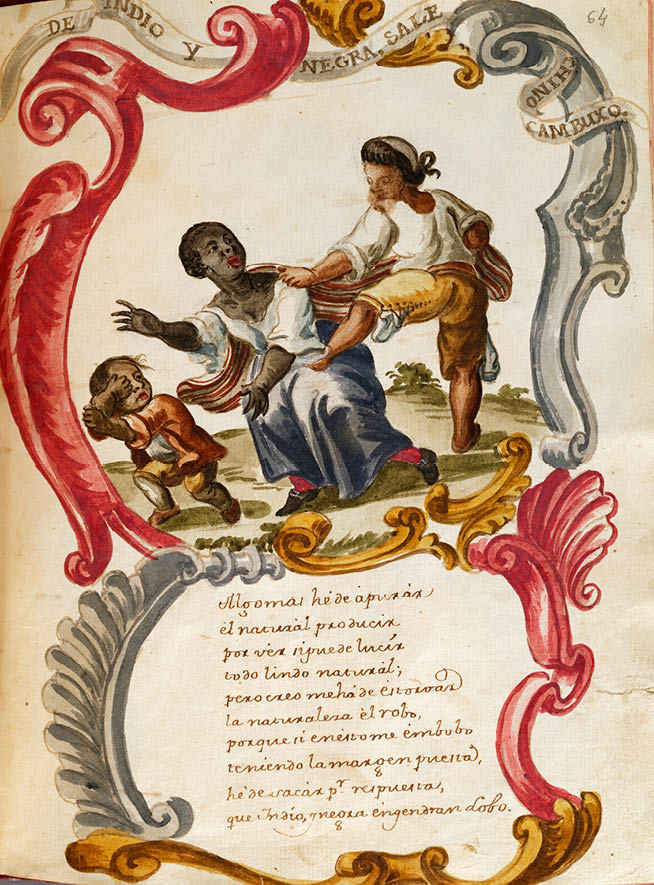 DE INDIO Y NEGRA, SALE
CHINO
CAMBUXO.
64
Algo mas hé de apurár
él naturál producir
por vér si puede lucír
todo lindo naturál;
pero creo me há de éstorvár
la naturaleza él robo,
porque si enésto me émbobo
teniendo la margen puesta,
hé de sacár pr. respuesta,
que Indío, y negra éngendran Lobo.